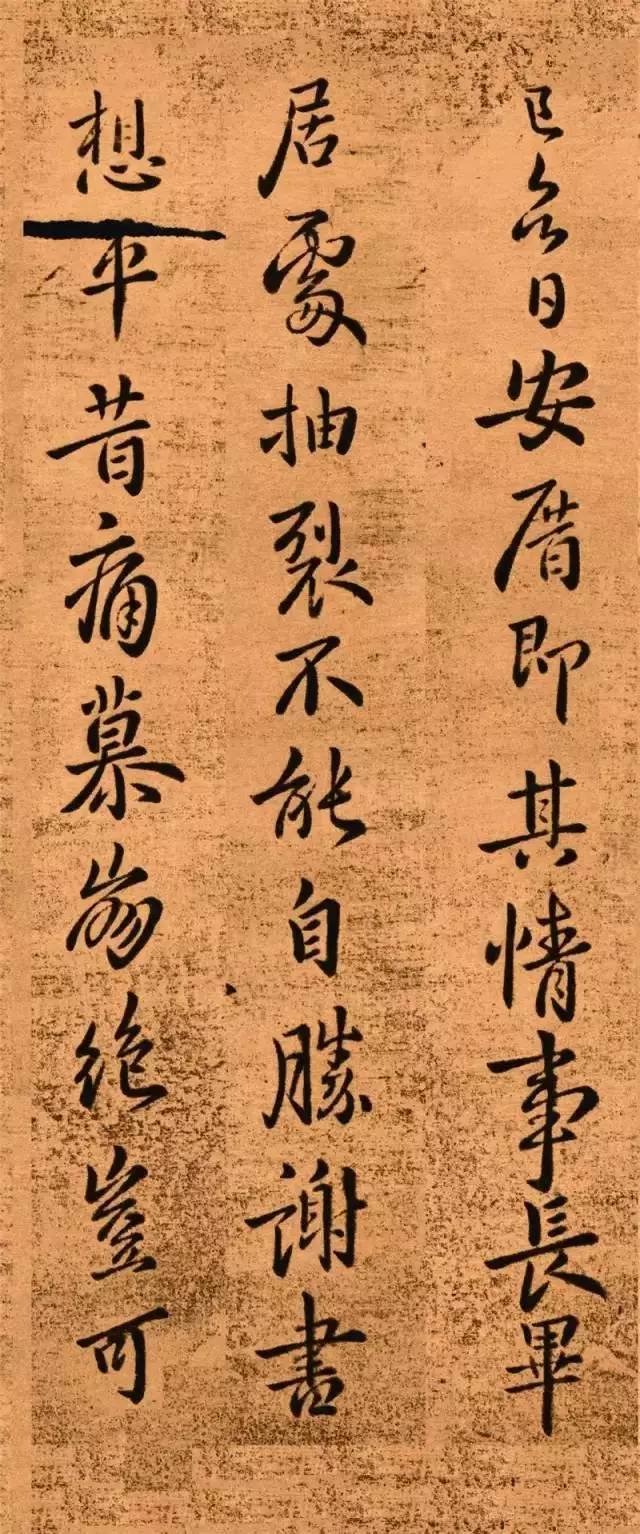 己亥日安厝即其情事長畢
居處抽裂不能自勝謝書
想平昔痛慕崩絕豈可